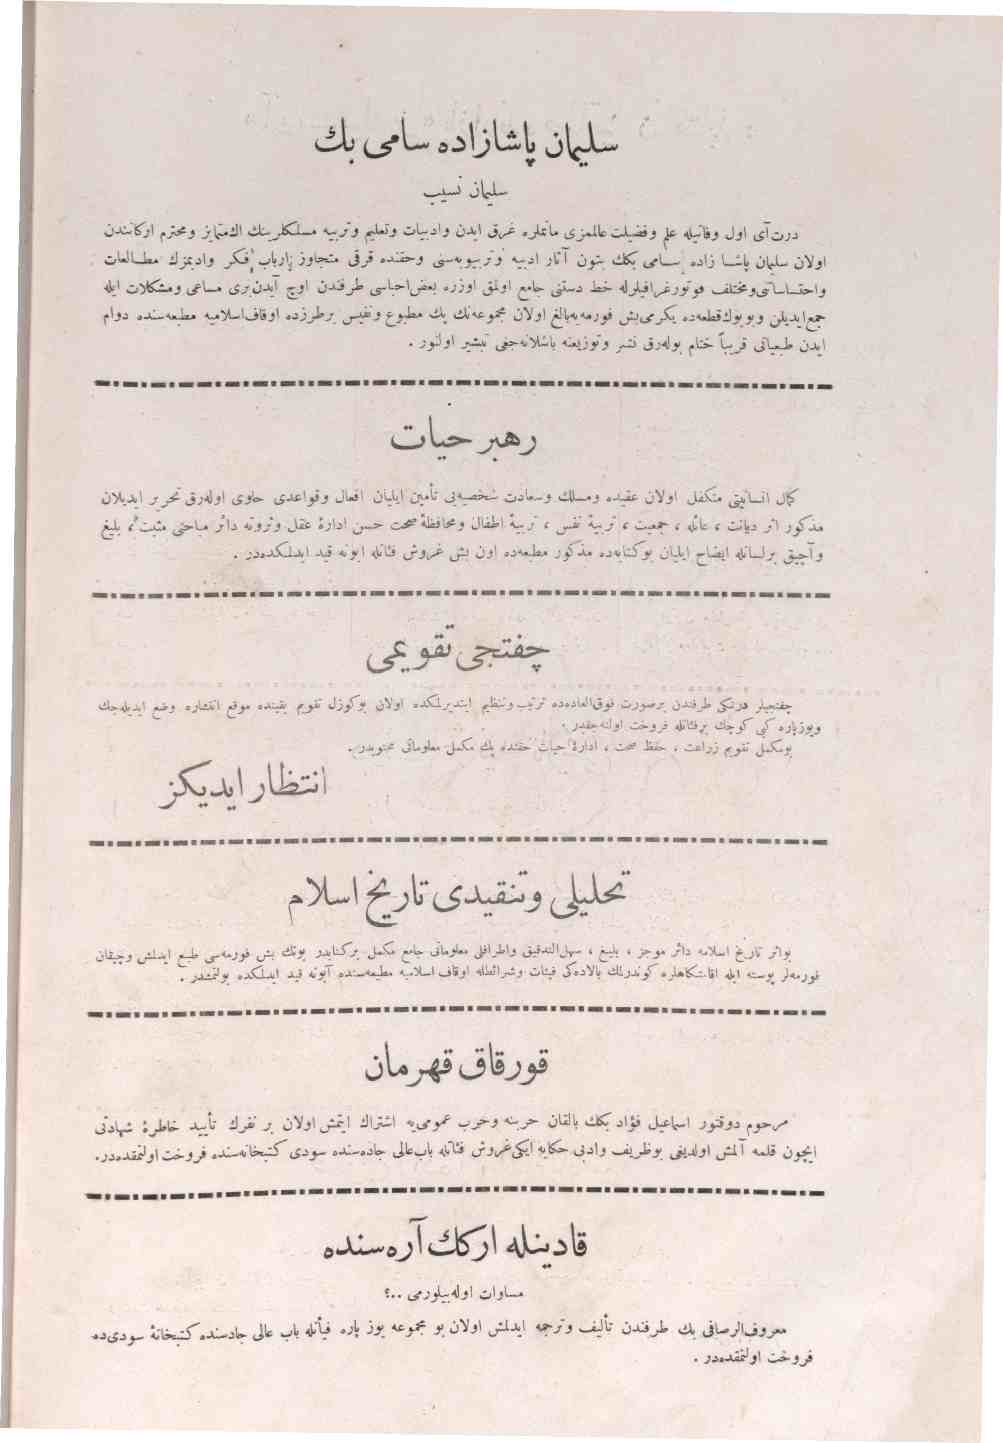 سليمان پاشازاده سامی بك
سليمان نسيب
درت آی اول وفاتيله علم وفضيلت عالممزی ماتملره غرق ايدن وادبيات وتعليم وتربيه مسلكلرينك اك متمايز ومحترم اركانندن
اولان سليمان پاشا زاده سامی بكك بتون آثار ادبيه وتربيويه‌سنی وحقنده قرقی متجاوز ارباب فكر وادبمزك مطالعات
واحتساساتی ومختلف فوتوغرافيلرله خط دستنی جامع اولمق اوزره بعض احباسی طرفندن اوچ آيدن بری مساعی ومشكلات ايله
جمع ايديلن وبويوك قطعه‌ده يكرمی بش فورمه‌يه بالغ اولان مجموعه‌نك پك مطبوع ونفيس برطرزده اوقاف اسلاميه مطبعه‌سنده دوام
ايدن طبعياتی قريباً ختام بوله‌رق نشر وتوزيعنه باشلانه‌جغی تبشير اولنور .
رهبر حيات
كمال انسانيتی متكفل اولان عقيده ومسلك وسعادت شخصيه‌يی تأمين ايليان افعال وقواعدی حاوی اوله‌رق تحرير ايديلان
مذكور اثر ديانت ، عائله ، جمعيت ، تربيهٔ نفس ، تربيهٔ اطفال ومحافظهٔ صحت حسن ادارهٔ عقل وثروته دائر مباحثی مثبت ، بليغ
وآچيق برلسانله ايضاح ايليان بوكتابه‌ده مذكور مطبعه‌ده اون بش غروش فئاتله آبونه قيد ايدلمكده‌در .
چفتجی تقويمی
چفتجيلر درنكی طرفندن برصورت فوق‌العاده‌ده ترتيب وتنظيم ايتديرلمكده اولان بوكوزل تقويم يقينده موقع انتشاره وضع ايديله‌جك
ويوزپاره كبی كوچك برفئاتله فروخت اولنه‌جقدر .
بومكمل تقويم زراعت ، حفظ صحت ، ادارهٔ حيات حقنده پك مكمل معلوماتی محتويدر .
انتظار ايديكز
تحليلی وتنقيدی تاريخ اسلام
بواثر تاريخ اسلامه دائر موجز ، بليغ ، سهل‌التدقيق واطرافلی معلوماتی جامع مكمل بركتابدر بوتك بش فورمه‌سی طبع ايدلمش وچيقان
فورمه‌لر پوسته ايله اقامتكاهلره كوندرلك بالاده‌كی فيئات وشرائطله اوقاف اسلاميه مطبعه‌سنده آبونه قيد ايدلمكده بولنمشدر .
قورقاق قهرمان
مرحوم دوقتور اسماعيل فؤاد بكك بالقان حربنه وحرب عمومی‌يه اشتراك ايتمش اولان بر نفرك تأييد خاطرهٔ شهادتی
ايچون قلمه آلمش اولديغی بوظريف وادبی حكايه ايكی غروش فئاتله باب‌عالی جاده‌سنده سودی كتبخانه‌سنده فروخت اولنمقده‌در.
قادينله اركك آره‌سنده
مساوات اوله‌بيلورمی ..؟
معروف‌الرصافی بك طرفندن تأليف وترجمه ايدلمش اولان بو مجموعه يوز پاره فيأتله باب عالی جادسنده كتبخانهٔ سودی‌ده
فروخت اولنمقده‌در .